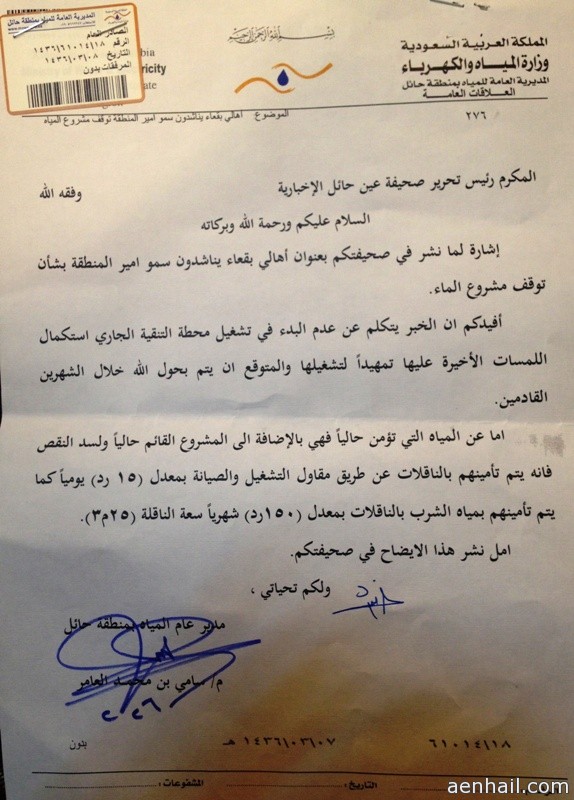 المديرية العامة للمياه بمنطقة حائل
الصادر العام
الرقم ٦١٠١٤/١٨/١٤٣٦
التاريخ ١٤٣٦/٠٣/٠٨
المرفقات بدون
bia
ricity
ate
بسم الله الرحمن الرحيم
المملكة العربية السعودية
وزارة المياه والكهرباء
المديرية العامة للمياه بمنطقة حائل
العلاقات العامة
٢٧٦
الموضوع أهالي بقعاء يناشدون سمو امير المنطقة توقف مشروع المياه
المكرم رئيس تحرير صحيفة عين حائل الإخبارية وفقه الله
السلام عليكم ورحمة الله وبركاته
إشارة لما نشر في صحيفتكم بعنوان أهالي بقعاء يناشدون سمو امير المنطقة بشأن
توقف مشروع الماء.
أفيدكم ان الخبر يتكلم عن عدم البدء في تشغيل محطة التنقية الجاري استكمال
اللمسات الأخيرة عليها تمهيداً لتشغيلها والمتوقع ان يتم بحول الله خلال الشهرين
القادمين.
اما عن المياه التي تؤمن حالياً فهي بالإضافة الى المشروع القائم حالياً ولسد النقص
فانه يتم تأمينهم بالناقلات عن طريق مقاول التشغيل والصيانة بمعدل (١٥ رد) يومياً كما
يتم تأمينهم بمياه الشرب بالناقلات بمعدل (١٥٠رد) شهرياً سعة الناقلة (٢٥م٣).
امل نشر هذا الايضاح في صحيفتكم.
ولكم تحياتي ،
مدير عام المياه بمنطقة حائل
م/ سامي بن محمد العامر
٦١٠١٤/١٨ ١٤٣٦/٠٣/٠٧ هـ بدون
التاريخ: المشفوعات:
aenhail.com